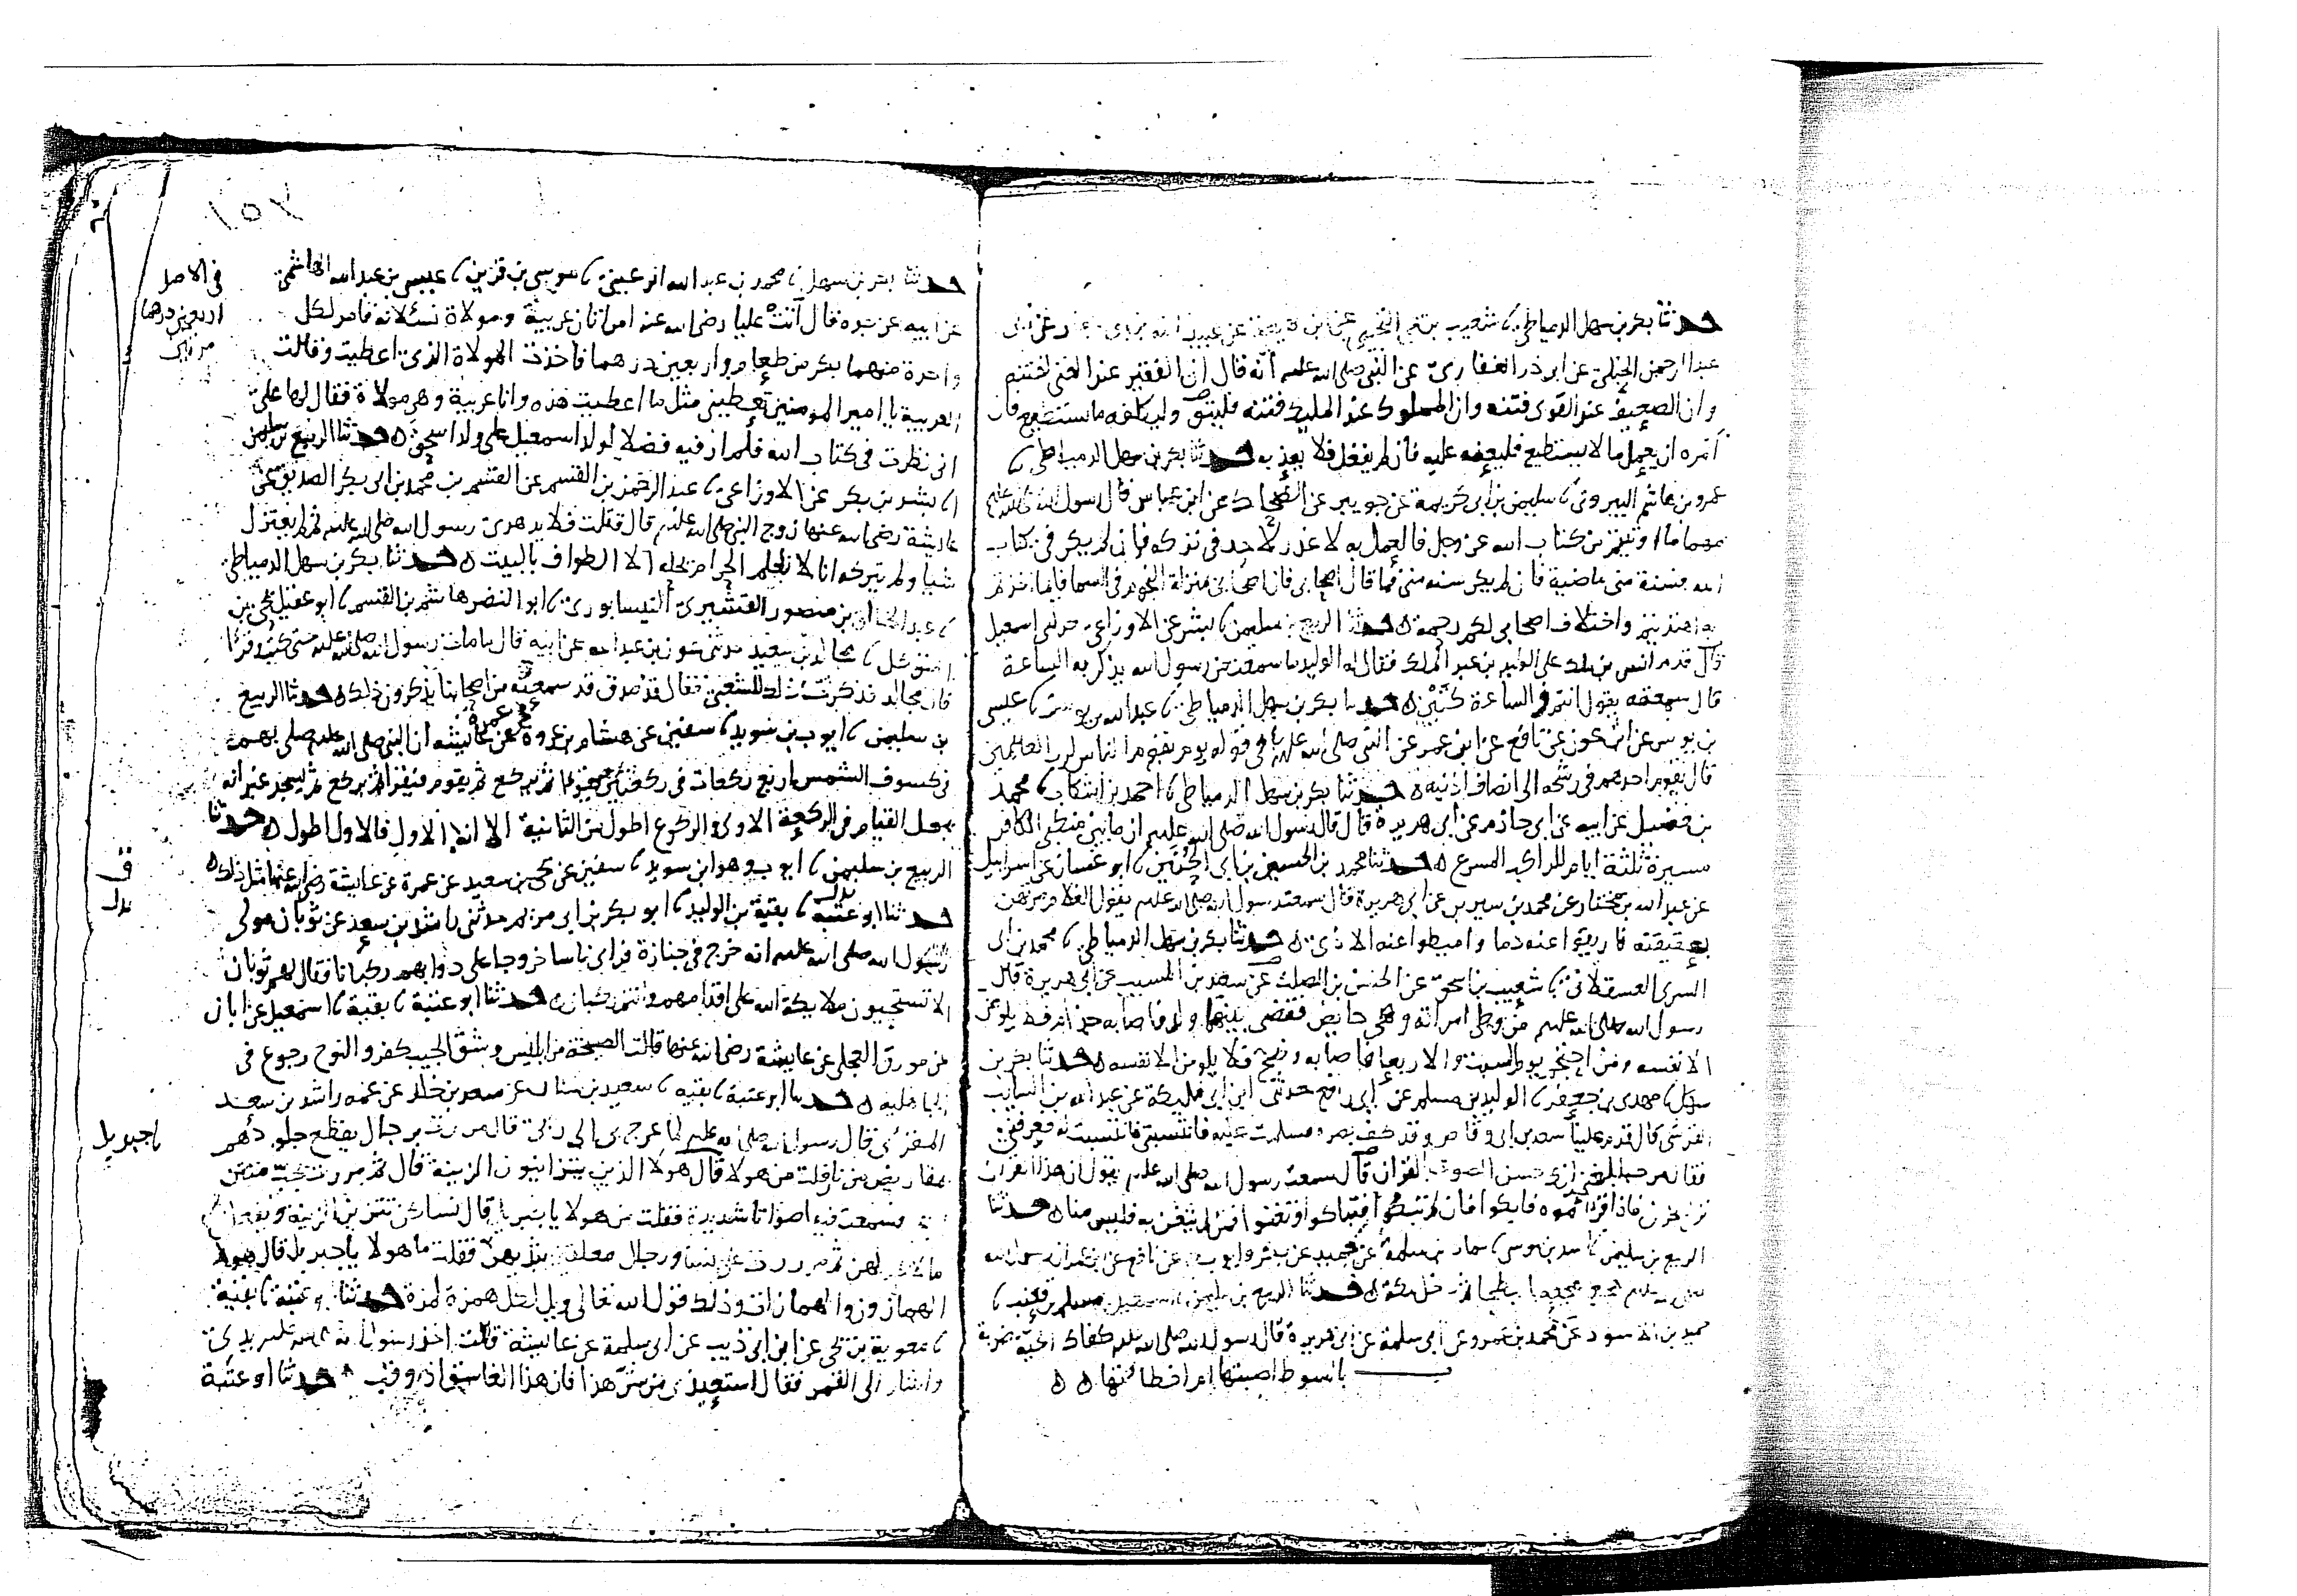 حدثنا بكر بن سهل الدمياطي نا شعيب بن يحيى التجيبي عن ابن لهيعة عن عبيد الله بن ابي جعفر عن ابي
عبد الرحمن الحبلي عن ابي ذر الغفاري عن النبي صلى الله عليه انه قال ان الفقير عند الغني لفتنه
وان الضعيف عند القوى فتنه وان المملوك عند المليك فتنه فليتق وليكلفه ما يستطيع فان
امره ان يعمل ما لا يستطيع فليعنه عليه فان لم يفعل فلا يعذبه حدثنا بكر بن سهل الدمياطي نا
عمرو بن هاشم البيروتي نا سليمن بن ابي كريمة عن جويبر عن الضحاك عن ابن عباس قال رسول الله صلى الله عليه
مهما اوتيتم من كتاب الله عز وجل فالعمل به لا عذر لاحد في تركه فان لم يكن في كتاب
الله فسنة مني ماضية فان لم يكن سنه مني فما قال اصحابي فان اصحابي بمنزلة النجوم في السما فايما اخذتم
به اهتديتم واختلاف اصحابي لكم رحمة حدثنا الربيع بن سليمن نا بشر عن الاوزاعي حدثني اسمعيل
قال قدم انس بن ملك على الوليد بن عبد الملك فقال له الوليد ما سمعت من رسول الله يذكر به الساعة
قال سمعته يقول انتم والساعة كتين حدثنا بكر بن سهل الدمياطي نا عبد الله بن يوسف نا عيسى
بن يونس عن ابن عون عن نافع عن ابن عمر عن النبي صلى الله عليه في قوله يوم يقوم الناس لرب العالمين
قال يقوم احدهم في رشحه الى انصاف اذنيه حدثنا بكر بن سهل الدمياطي نا احمد بن اشكاب نا محمد
بن فضيل عن ابيه عن ابي حازم عن ابي هريرة قال قال رسول الله صلى الله عليه ان ما بين منكبي الكافر
مسيرة ثلثة ايام للراكب المسرع حدثنا محمد بن الحسين بن ابي الحنين نا ابو غسان نا اسرائيل
عن عبد الله بن مختار عن محمد بن سيرين عن ابي هريرة قال سمعت رسول الله صلى الله عليه يقول الغلام مرتهن
بعقيقته فاريقوا عنه دما واميطوا عنه الاذى حدثنا بكر بن سهل الدمياطي نا محمد بن ابي
السري العسقلاني نا شعيب بن اسحق عن الحسن بن الصلت عن سعيد بن المسيب عن ابي هريرة قال
رسول الله صلى الله عليه من وطي امراته وهي حايض فقضي بينهما ولد فاصابه جذام فلا يلومن
الا نفسه ومن احتجم يوم السبت والاربعا فاصابه وضح فلا يلومن الا نفسه حدثنا بكر بن
سهل نا مهدي بن جعفر نا الوليد بن مسلم عن ابي رافع حدثني ابن ابي مليكة عن عبد الله بن السايب
القرشي قال قدم علينا سعد بن ابي وقاص وقد كف بصره فسلمت عليه فانتسبني فانتسبت له فعرفني
فقال مرحبا بلغني انك حسن الصوت بالقران قال سمعت رسول الله صلى الله عليه يقول ان هذا القران
نزل بحزن فاذا قراتموه فابكوا فان لم تبكوا فتباكوا وتغنوا فمن لم يتغن به فليس منا حدثنا
الربيع بن سليمن نا اسد بن موسى نا حماد بن سلمة عن حميد عن بكر وايوب عن نافع عن ابن عمر ان رسول الله
صلى الله عليه هجع هجعة بالبطحا ثم دخل مكة حدثنا الربيع بن سليمن نا
حميد بن الاسود عن محمد بن عمرو عن ابي سلمة عن ابي هريرة قال رسول الله صلى الله عليه كفاك الحية ضربة
بالسوط اصبتها ام اخطاتها
١٥٧
حدثنا بكر بن سهل نا محمد بن عبد الله الرعيني نا موسى بن قرين نا عيسى بن عبد الله الهاشمي
عن ابيه عن جده قال اتت عليا رضي الله عنه امراتان عربية ومولاة تسئلانه فامر لكل
واحدة منهما بكر من طعام واربعين درهما فاخذت المولاة الذي اعطيت وقالت
العربية يا امير المومنين تعطيني مثل ما اعطيت هذه وانا عربية وهي مولاة فقال لها علي
اني نظرت في كتاب الله فلم ار فيه فضلا لولد اسمعيل على ولد اسحق حدثنا الربيع بن سليمن
نا بشر بن بكر عن الاوزاعي نا عبد الرحمن بن القسم عن القسم بن محمد بن ابي بكر الصديق عن
عايشة رضي الله عنها زوج النبي صلى الله عليه قال فتلت قلايد هدي رسول الله صلى الله عليه ثم لم يعتزل
شيا ولم يتركه انا لا نعلم الحرام يحله الا الطواف بالبيت حدثنا بكر بن سهل الدمياطي
نا عبد الخالق بن منصور القشيري النيسابوري نا ابو النضر هاشم بن القسم نا ابو عقيل يحيى بن
المتوكل نا مجالد بن سعيد حدثني عون بن عبد الله عن ابيه قال ما مات رسول الله صلى الله عليه حتى كتب وقرا
قال مجالد فذكرت ذلك للشعبي فقال قد صدق قد سمعت من اصحابنا يذكرون ذلك حدثنا الربيع
بن سليمن نا ايوب بن سويد نا سفين عن هشام بن عروة عن عايشه ان النبي صلى الله عليه صلى بهم
عن عمرة
في كسوف الشمس اربع ركعات في ركعتين ثم يركع ثم يقوم فيقرا ثم يركع ثم يسجد غير انه
جعل القيام في الركعة الاولى والركوع اطول من الثانية الا انه الاول فالاول اطول حدثنا
الربيع بن سليمن نا ايوب وهو ابن سويد نا سفين عن يحيى بن سعيد عن عمرة عن عايشة رضي الله عنها مثل ذلك
حدثنا ابو عتبة نا بقية بن الوليد نا ابو بكر بن ابي مريم حدثني راشد بن سعد عن ثوبان مولى
رسول الله صلى الله عليه انه خرج في جنازة فراى ناسا خروجا على دوابهم ركبانا فقال لهم ثوبان
الا تستحيون ملايكة الله على اقدامهم وانتم ركبان حدثنا ابو عتبة نا بقية نا اسمعيل عن ابان
عن مورق العجلي عن عايشة رضي الله عنها قالت الصيحة من ابليس وشق الجيب كفر والنوح رجوع في
الجاهلية حدثنا ابو عتبة نا بقيه نا سعيد بن سنان عن سعد بن خلد عن عمه راشد بن سعد
المقرئي قال رسول الله صلى الله عليه لما عرج بي الى ربي قال مررت برجال يقطع جلودهم
بمقاريض من نار قلت من هولا قال هولا الذين يتزاينون الزينة قال ثم مررت بجب منتن
فسمعت فيه اصواتا شديدة فقلت من هولا يا جبريل قال نساكن تتزين الزينة
ما لا يحل لهن ثم مررت على نسا ورجال معلقين بثديهن فقلت ما هولا يا جبريل قال هولا
الهمازون والهمازات وذلك قول الله تعالى ويل لكل همزة لمزة حدثنا ابو عتبة نا بقية
نا معوية بن يحيى عن ابن ابي ذيب عن ابي سلمة عن عايشة قالت اخذ رسول الله صلى الله عليه بيدي
واشار الى القمر فقال استعيذي من شر هذا فان هذا الغاسق اذا وقب حدثنا ابو عتبة
في الاصل
اربعين درهما
يا جبريل